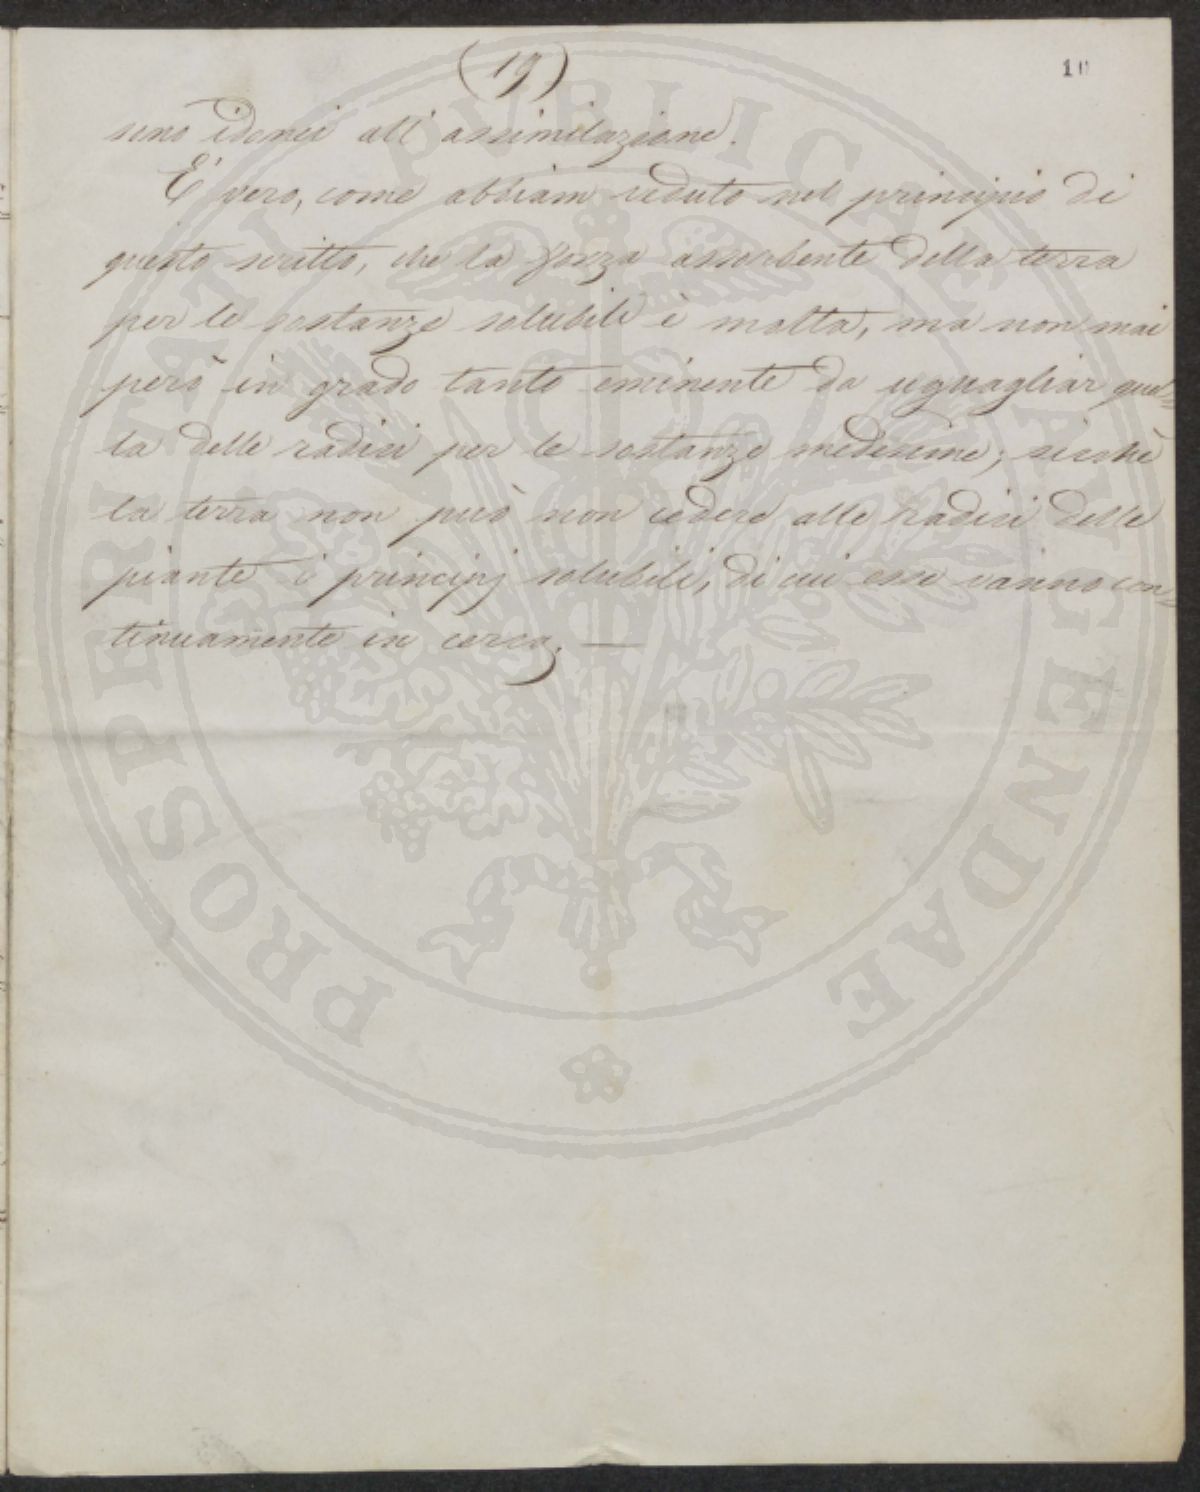 (19)
10
sono idonei all'assimilazione.
E' vero, come abbiam veduto nel principio di
questo scritto, che la forza assorbente della terra
per le sostanze solubili è molta, ma non mai
però in grado tanto eminente da uguagliar quel=
la delle radici per le sostanze medesime; sicchè
la terra non può non cedere alle radici delle
piante i principj solubili, di cui esse vanno con=
tinuamente in cerca. —
PROSPERITATI PUBLICAE AUGENDAE